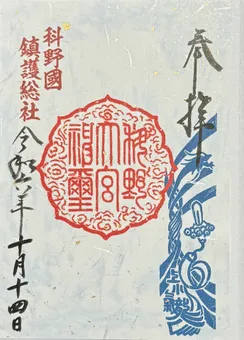 奉拝
科野
大宮
神璽
科野國
鎮護総社
令和六年十月十四日